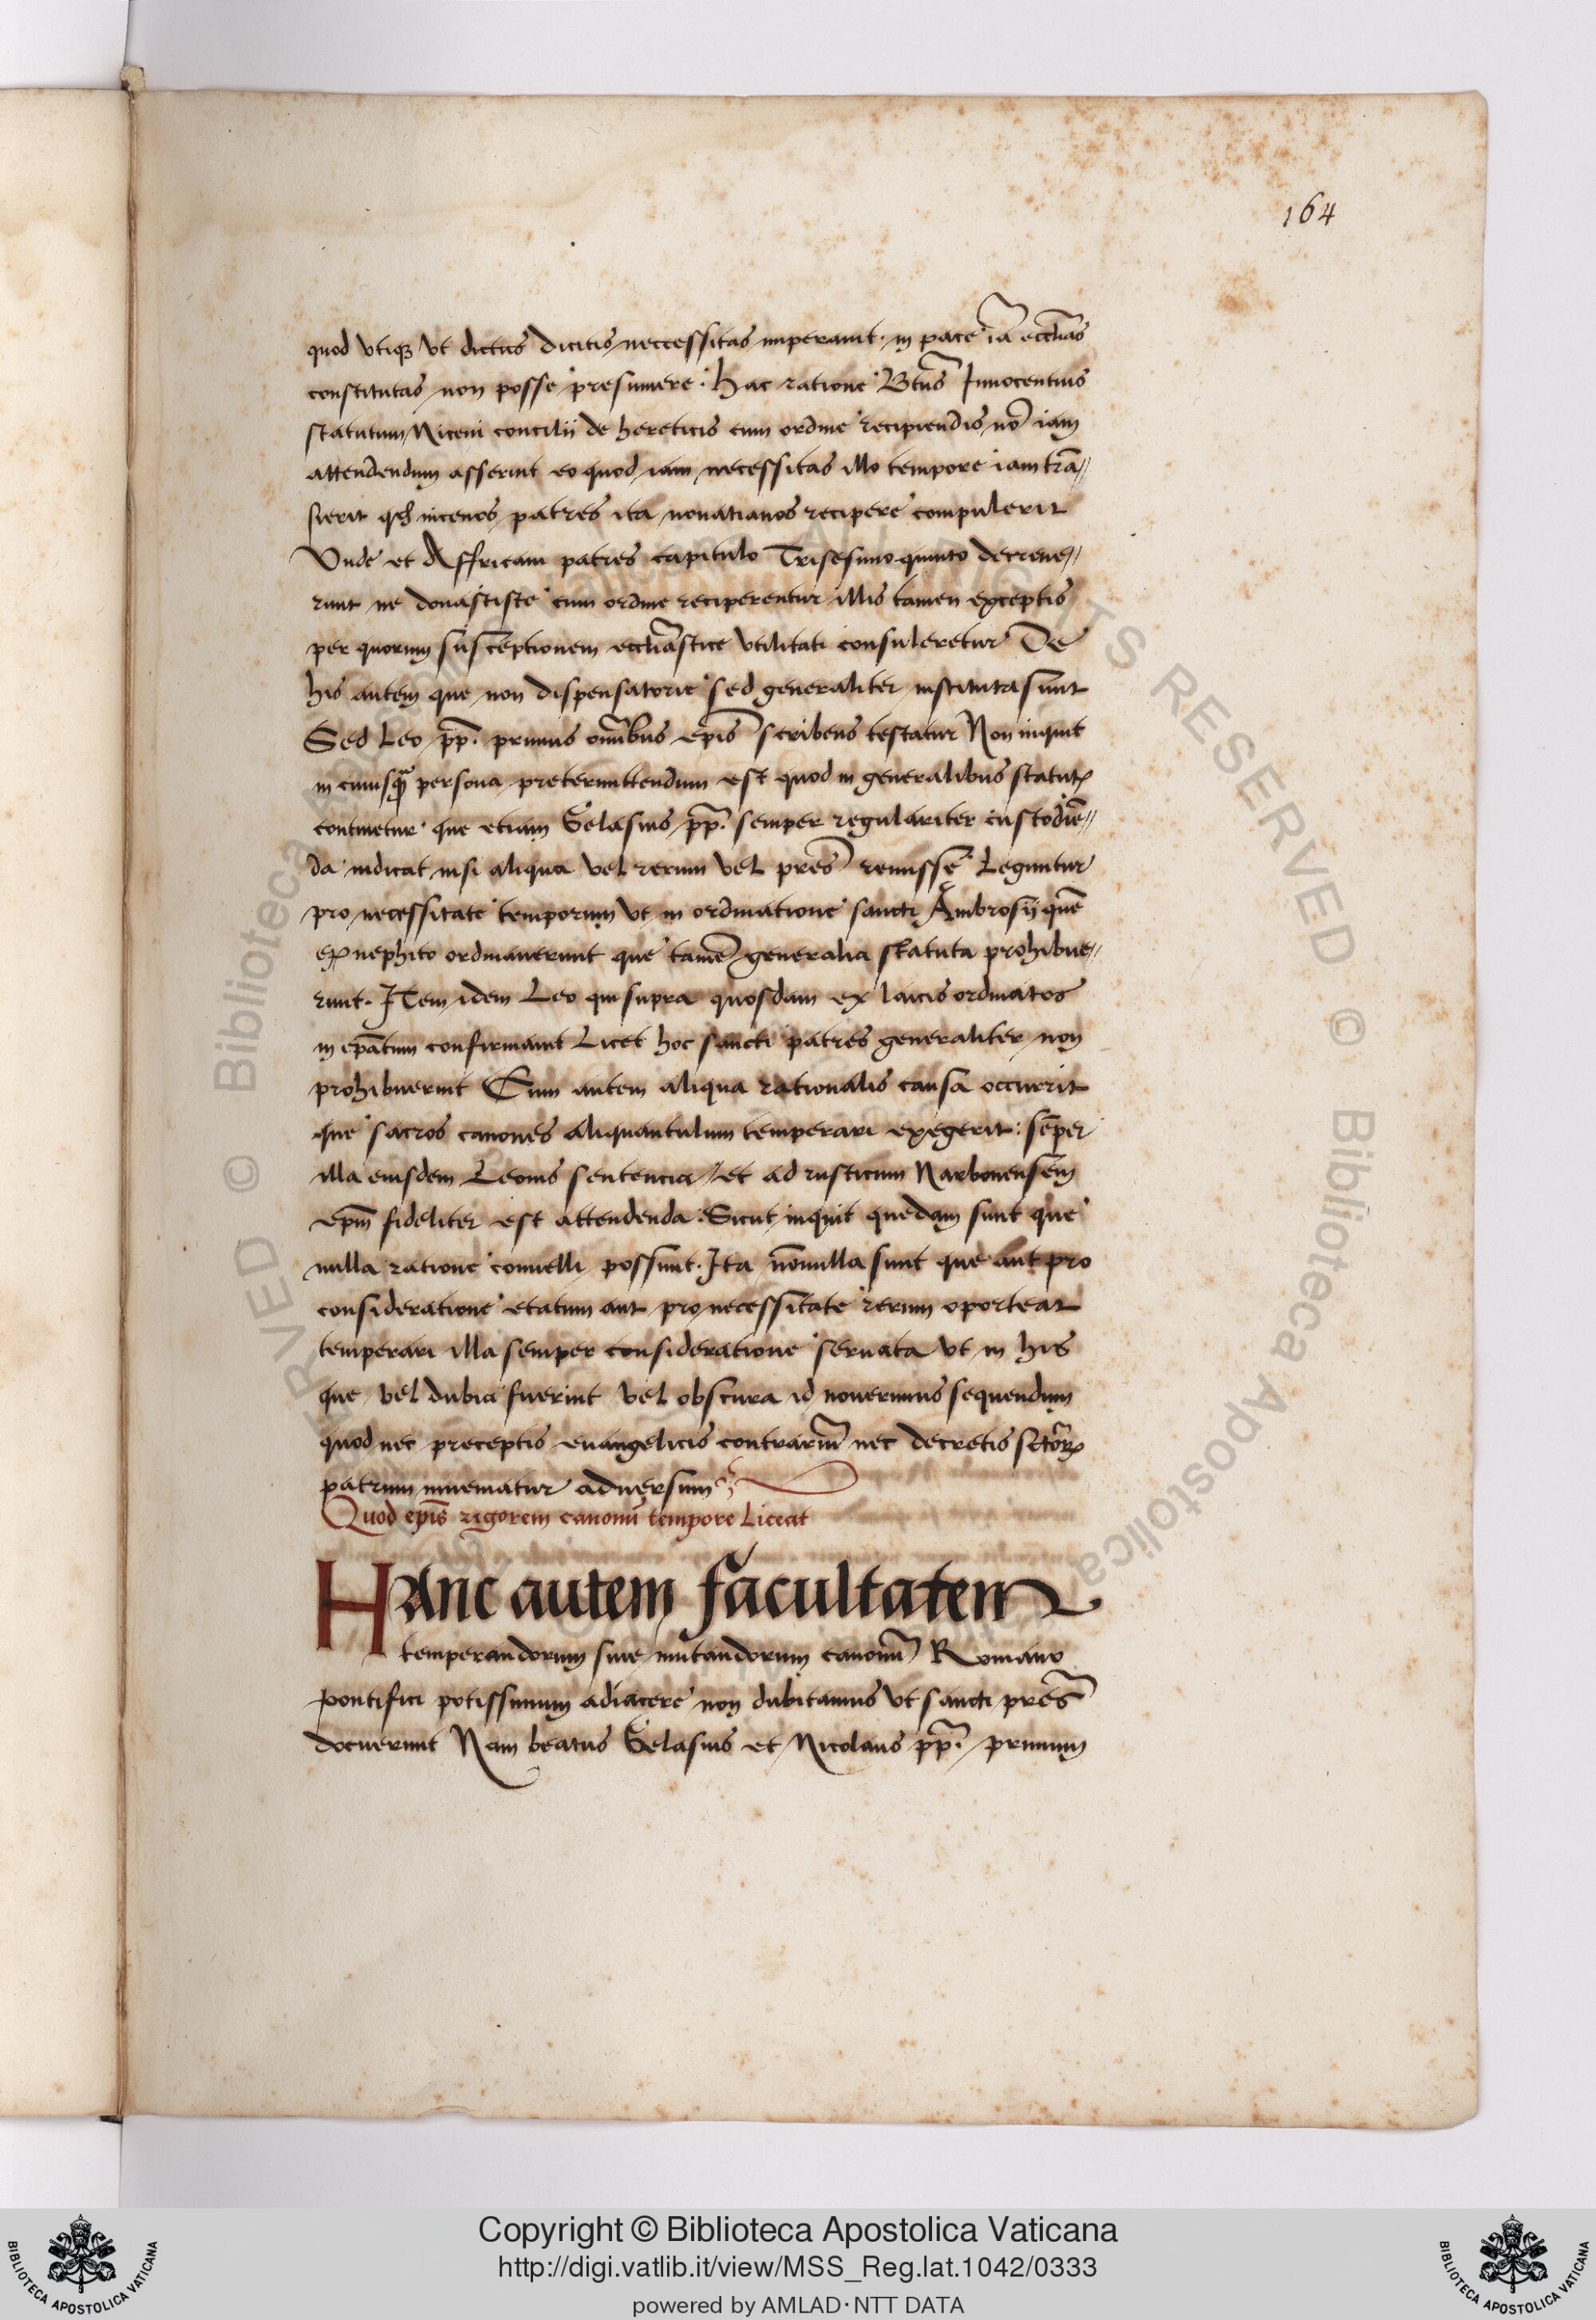 164
quod vtiqȝ vt dictus dicitis neccessitas imperauit · in pace iā eccl̄ias
constitutas non posse presumere : hac ratione Btūs Innocentius
statutum Niceni concilij de hereticis cum ordine recipiendis nō iam
attendendum asserint eo quod iam necessitas illo tempore iam trā//
sierit q nicenos patres ita nouatianos recipere compulerit
Vnde et Affricani patres capitulo Trisesimo quinto decreue//
runt ne donastiste cum ordine reciperentur illis tamen exceptis
per quorum susceptionem eccl̄iastice vtilitati consuleretur De
his autem que non dispensatorie sed generaliter instituta sunt
Sed Leo pp̄. primus om̄ibus ep̄is scribens testatur Non inquit
in cuiusq̄ persona pretermittendum est quod in generalibus statutꝭ
continetur que etiam Gelasius pp̄. semper regulariter custodiē//
da indicat nisi aliqua vel rerum vel pr̄es remisse Leguntur
pro necessitate temporum vt in ordinatione sancti Ambrosij quē
ex nephito ordinauerunt que tamē generalia statuta prohibue//
runt · Item idem Leo qui supra quosdam ex laicis ordinatos
in ep̄atum confirmauit Licet hoc sancti patres generaliter non
prohibuerint Cum autem aliqua rationalis causa occurrit
que sacros canones aliquantulum temperari exegerit : sēper
illa eiusdem Leonis sentencia / et ad rusticum Narbonensem
ep̄m fideliter est attendenda : Sicut inquit quedam sunt que
nulla ratione conuelli possunt · Ita nōnulla sunt que aut pro
consideratione etatum aut pro necessitate rerum oporteat
temperari illa semper consideratione seruata vt in his
que vel dubia fuerint vel obscura id nouerimus sequendum
quod nec preceptis euangelicis contrariū nec decretis sctōrꝝ
patrum inuematur aduersum
Quod ep̄is rigorem canonū tempore Liceat
HAnc autem facultatem
temperandorum siue mutandorum canonū Romano
pontifici potissimum adiacere non dubitamus vt sancti pr̄es
docuerunt Nam beatus Gelasius et Nicolaus pp̄. primum
© Biblioteca Apostolica Vaticana ALL RIGHTS RESERVED
Copyright © Biblioteca Apostolica Vaticana
http://digi.vatlib.it/view/MSS_Reg.lat.1042/0333
powered by AMLAD·NTT DATA
BIBLIOTECA APOSTOLICA VATICANA
BIBLIOTECA APOSTOLICA VATICANA